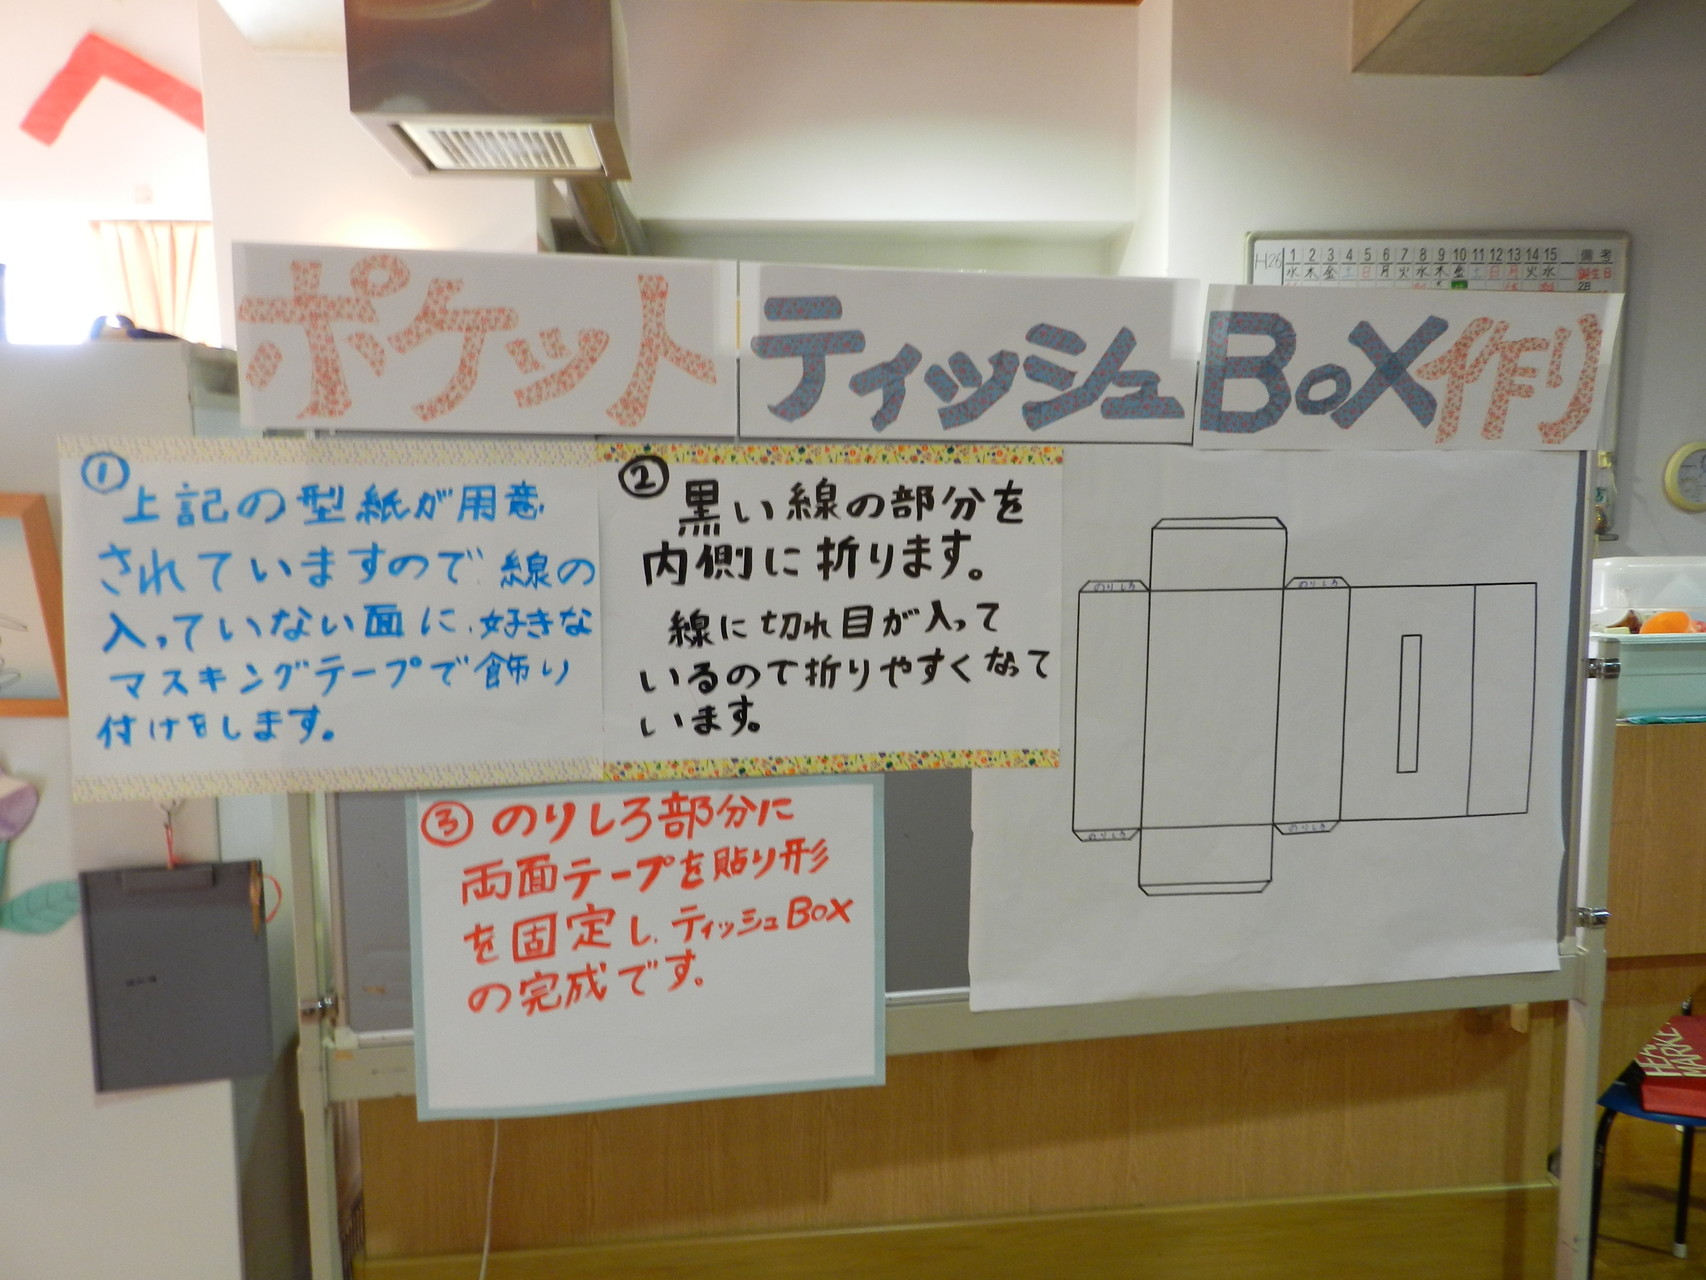 ポケットティッシュBOX作り
H26 1 2 3 4 5 6 7 8 9 10 11 12 13 14 15 備考
水 木 金 土 日 月 火 水 木 金 土 日 月 火 水 誕生日
① 上記の型紙が用意
されていますので、線の
入っていない面に、好きな
マスキングテープで飾り
付けをします。
② 黒い線の部分を
内側に折ります。
線に切れ目が入って
いるので折りやすくなって
います。
のりしろ
のりしろ
のりしろ
のりしろ
③ のりしろ部分に
両面テープを貼り形
を固定し、ティッシュBOX
の完成です。